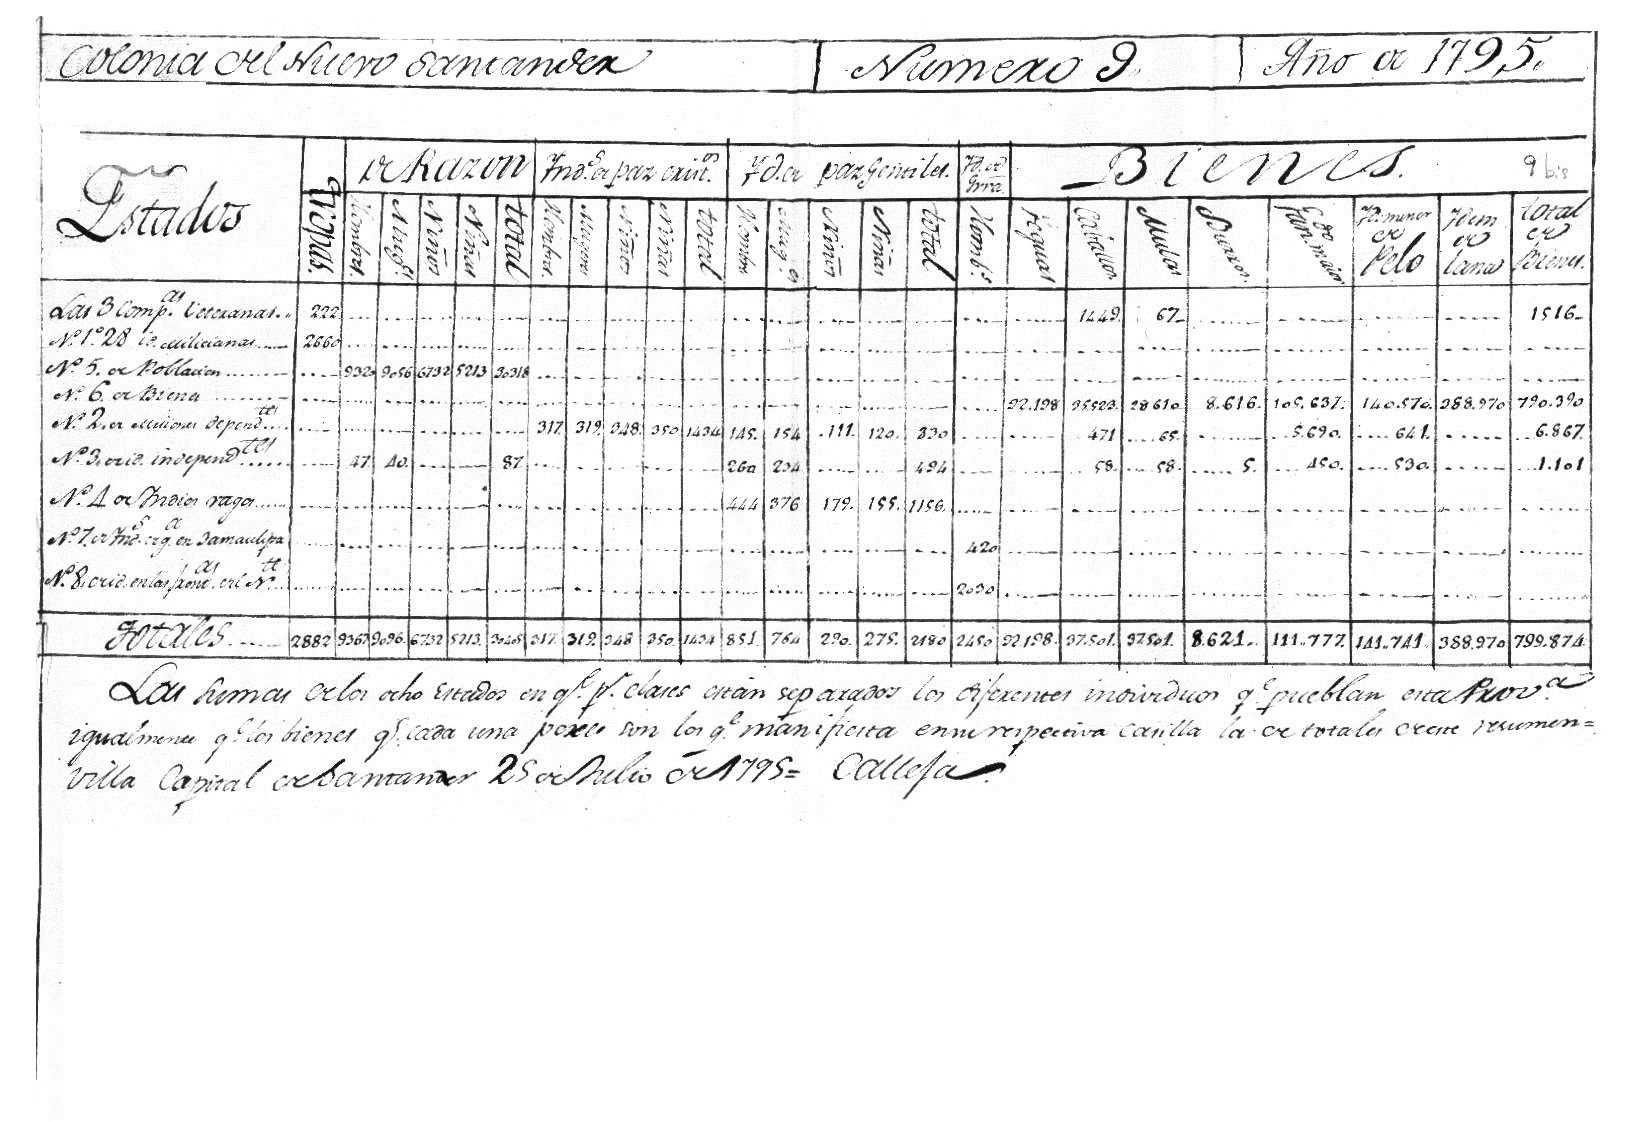 Colonia del Nuevo Santander Numero 9. Año de 1795.
9 bis
Estados Tropas. de Razon Ynd.s de paz exist.os Yd. de paz Gentiles. Yd. de Grra. Bienes.
Hombres. Mug.s Niños Niñas total Hombres. Mugeres Niños Niñas total Hombres Mug.es Niños Niñas total Homb.s Yeguas Caballos Mulas Burros. Gan.do maior Yd. menor de Pelo Yd. em de lana total de Bienes.
Las 3 Comp.as Veteranas 222 1449. 67 1516
N.o 1.o 28 id. Milicianas 2660
N.o 5. de Poblacion 9320 9056 6732 5213 30318
N.o 6. de Bienes 92.198 35523. 28610. 8.616. 105.637. 140.570. 388.970 790.390
N.o 2. de Misiones depend.tes 317. 319. 348. 350 1434 145. 154 111. 120. 330 471 65. 5.690. 641. 6.867.
N.o 3. de id. independ.tes 47. 40. 87 260 234 494 58. 58. 5. 450. 530. 1.101
N.o 4 de Indios vagos 444 376 179. 155. 1156.
N.o 7. de Ynd.s de g.a en Tamaulipa 420
N.o 8. de id. en las front.as del N.te 2030
Totales 2882 9367 9096. 6732 5213. 30405 317. 319. 348 350. 1434 851. 764 290. 275. 2180 2450 92198. 37.501. 37501. 8.621. 111.777. 141.741. 388.970 799.874
Las sumas de los ocho Estados en q.e p.r clases están separados los diferentes individuos q.e pueblan esta Prov.a
igualmente q.e los bienes q.e cada una posee son los q.e manifiesta en su respectiva casilla la de totales de este resumen=
Villa Capital de Santander 25 de Julio de 1795= Calleja.